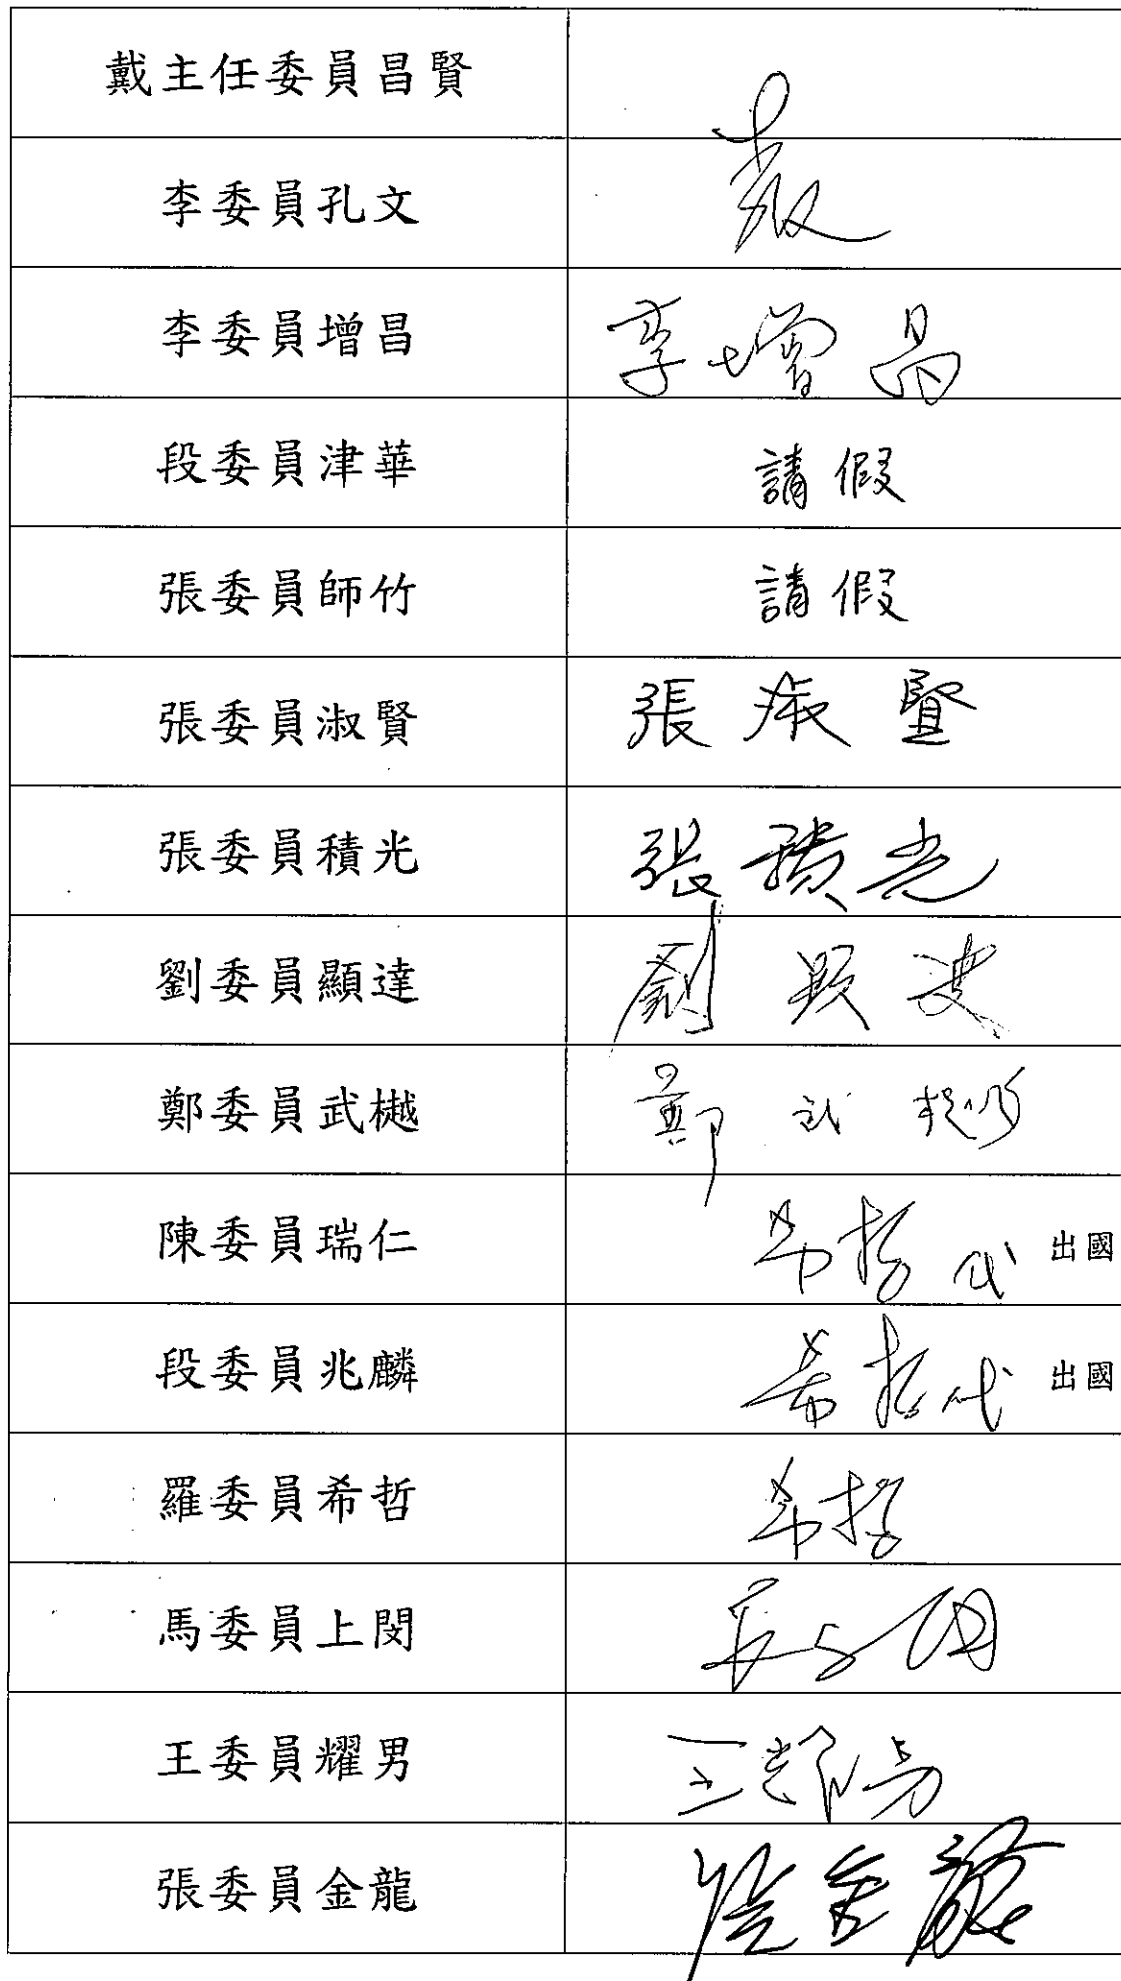 戴主任委員昌賢
李委員孔文
李委員增昌 李增昌
段委員津華 請假
張委員師竹 請假
張委員淑賢 張淑賢
張委員積光 張積光
劉委員顯達 劉顯達
鄭委員武樾 鄭武樾
陳委員瑞仁 希哲代 出國
段委員兆麟 希哲代 出國
羅委員希哲 希哲
馬委員上閔 馬上閔
王委員耀男 王耀男
張委員金龍 張金龍